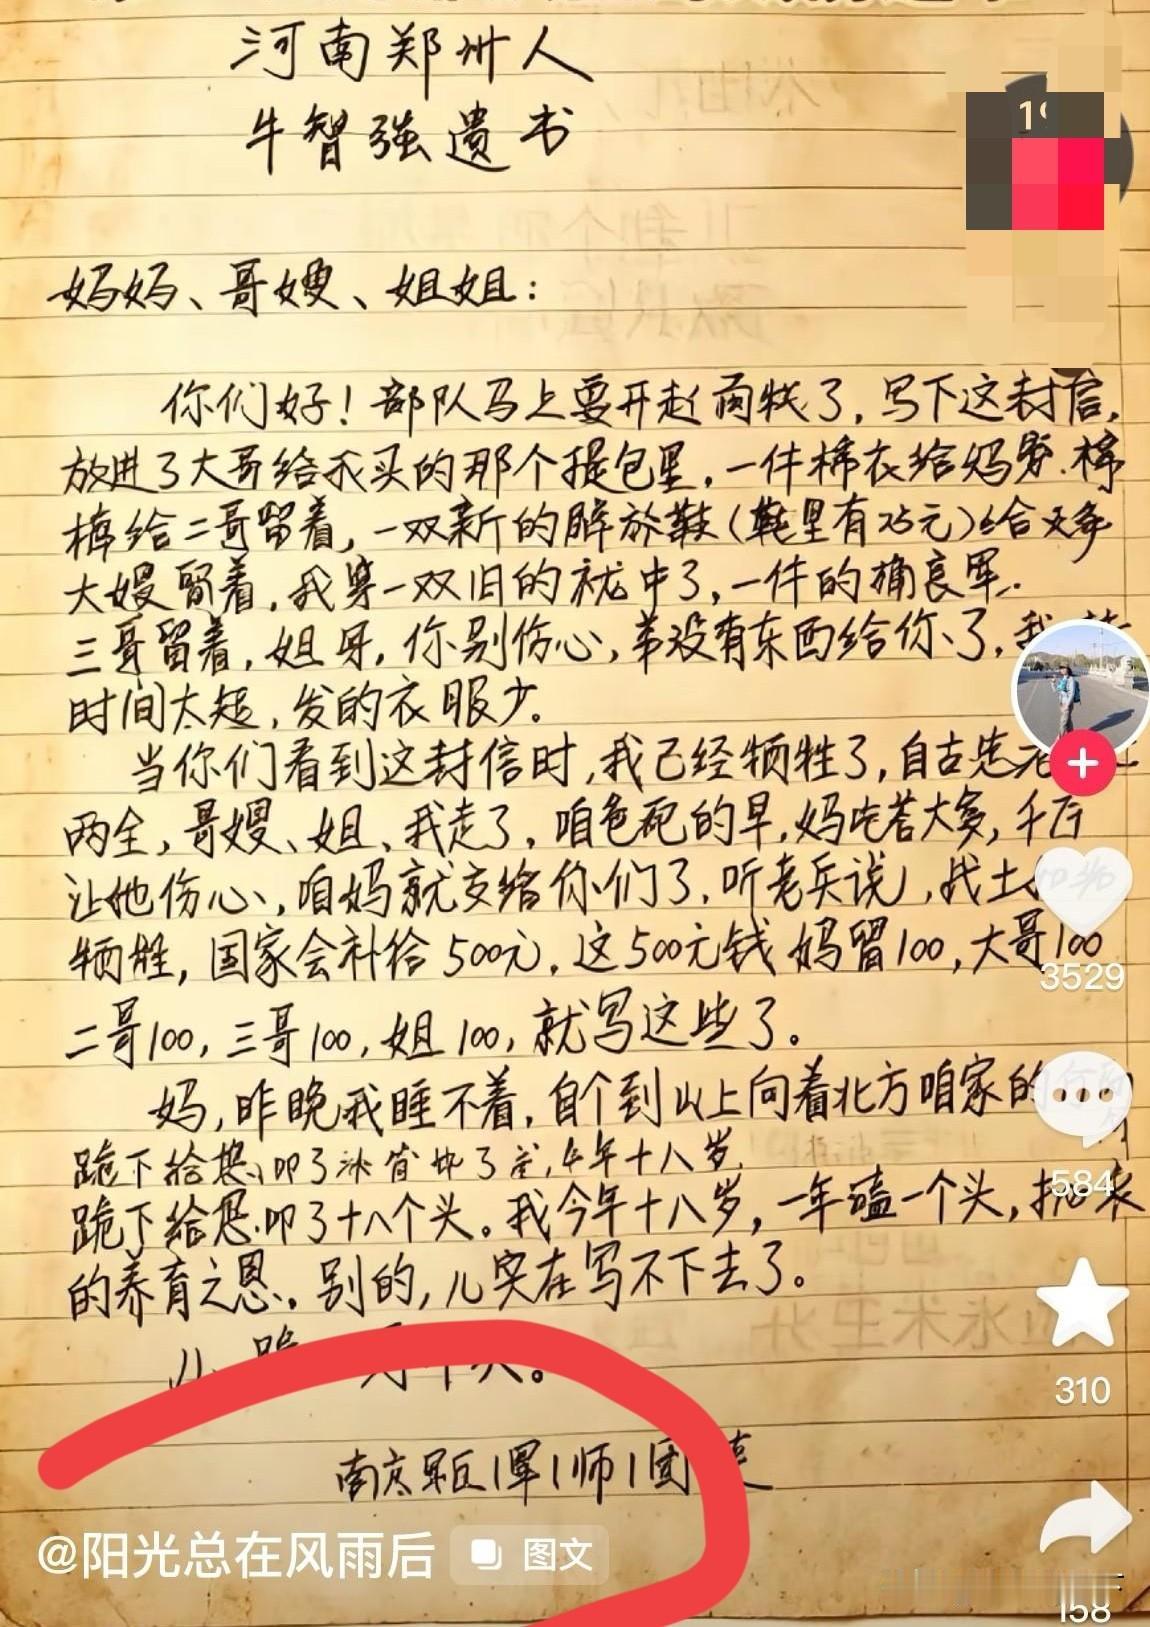 河南郑州人
牛智强遗书
19
妈妈、哥嫂、姐姐：
你们好！部队马上要开赴前线了，写下这封信，
放进了大哥给我买的那个提包里，一件棉衣给妈穿.棉
给二哥留着，一双新的解放鞋（鞋里有25元）给
大嫂留着，我穿一双旧的就中了，一件的
三哥留着，姐呀，你别伤心，弟没有东西给你了，我
时间太短，发的衣服少。
当你们看到这封信时，我已经牺牲了，自古忠
两全，哥嫂、姐、我走了，咱爸死的早，妈吃苦太多，千万
让她伤心，咱妈就交给你们了，听老兵说，战士
牺牲，国家会补给500元，这500元钱妈留100，大哥100
3529
二哥100，三哥100，姐100，就写这些了。
妈，昨晚我睡不着，自个到山上向着北方咱家的
跪下给您叩了
年十八岁
584
跪下给您叩了十八个头。我今年十八岁，一年磕一个头，
的养育之恩。别的，儿实在写不下去了。
310
南京军区1军1师1团
@阳光总在风雨后 图文
158